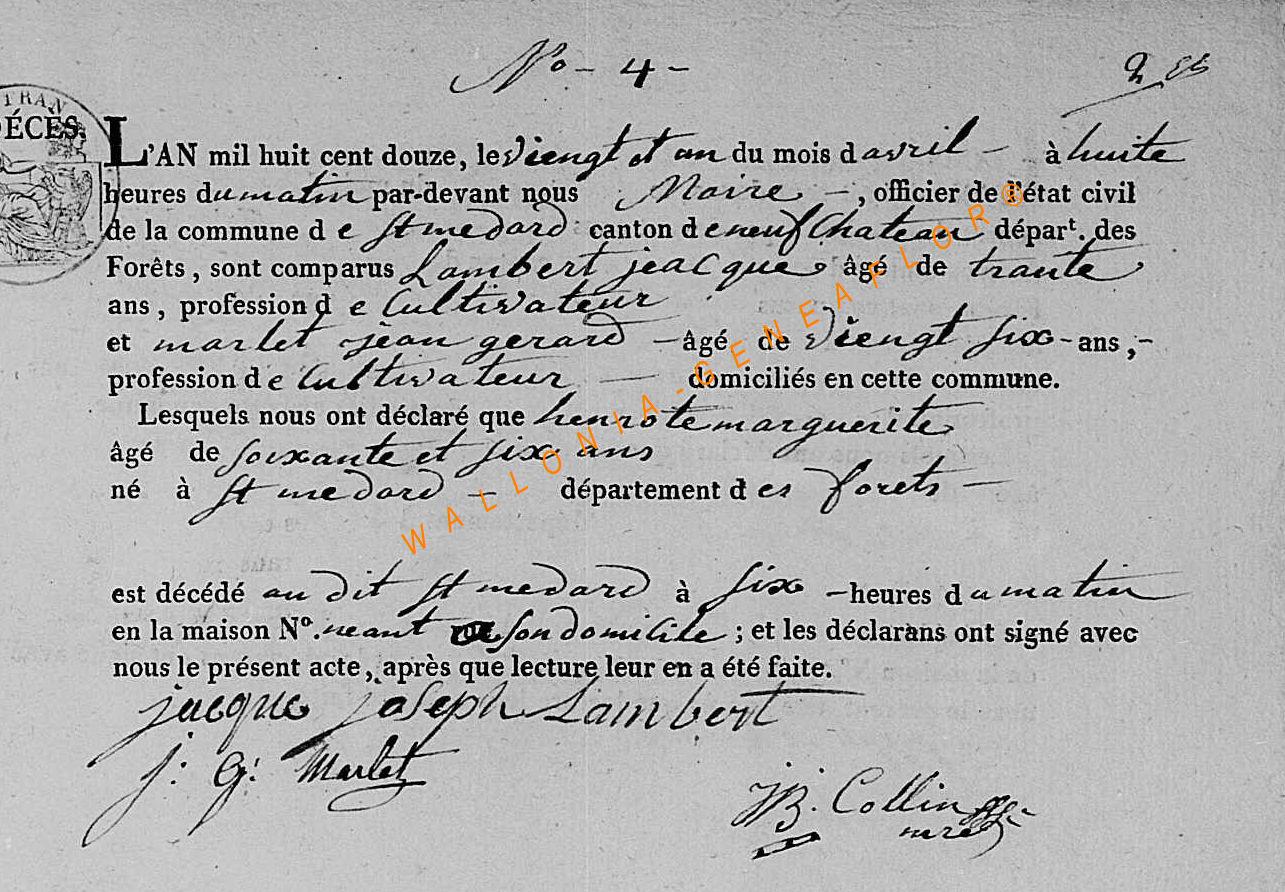 No - 4 -
TRAN
DÉCÈS.
L'AN mil huit cent douze, le viengt et un du mois d avril - à huite
heures du matin par-devant nous Maire -, officier de l'état civil
de la commune d e St medard canton d e neufChateau épart. des
Forêts, sont comparus Lambert jeacque âgé de trante
ans, profession d e Cultivateur
et marlet jean gerard - âgé de viengt six - ans, -
profession d e Cultivateur - domiciliés en cette commune.
Lesquels nous ont déclaré que henrote marguerite
âgé de soixante et six ans
né à St medard - département d es forets -
est décédé au dit St medard à six - heures du matin
en la maison No. neant son domicile ; et les déclarans ont signé avec
nous le présent acte, après que lecture leur en a été faite.
jacque joseph Lambert
j: G: Marlet
JB. Collin
mre
WALLONIA-GENEAFLOR©